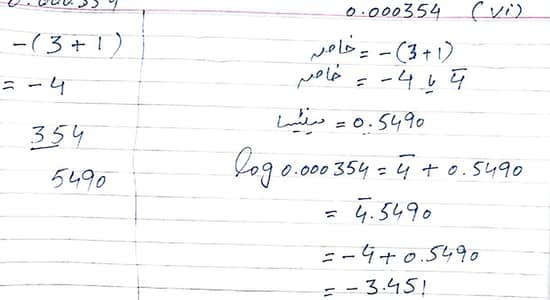 0.000354
-(3+1)
= -4
354
5490
0.000354 (vi)
خاصہ = -(3+1)
خاصہ = -4 یا 4̄
مینٹیسا = 0.5490
log 0.000354 = 4̄ + 0.5490
= 4̄.5490
= -4 + 0.5490
= -3.451